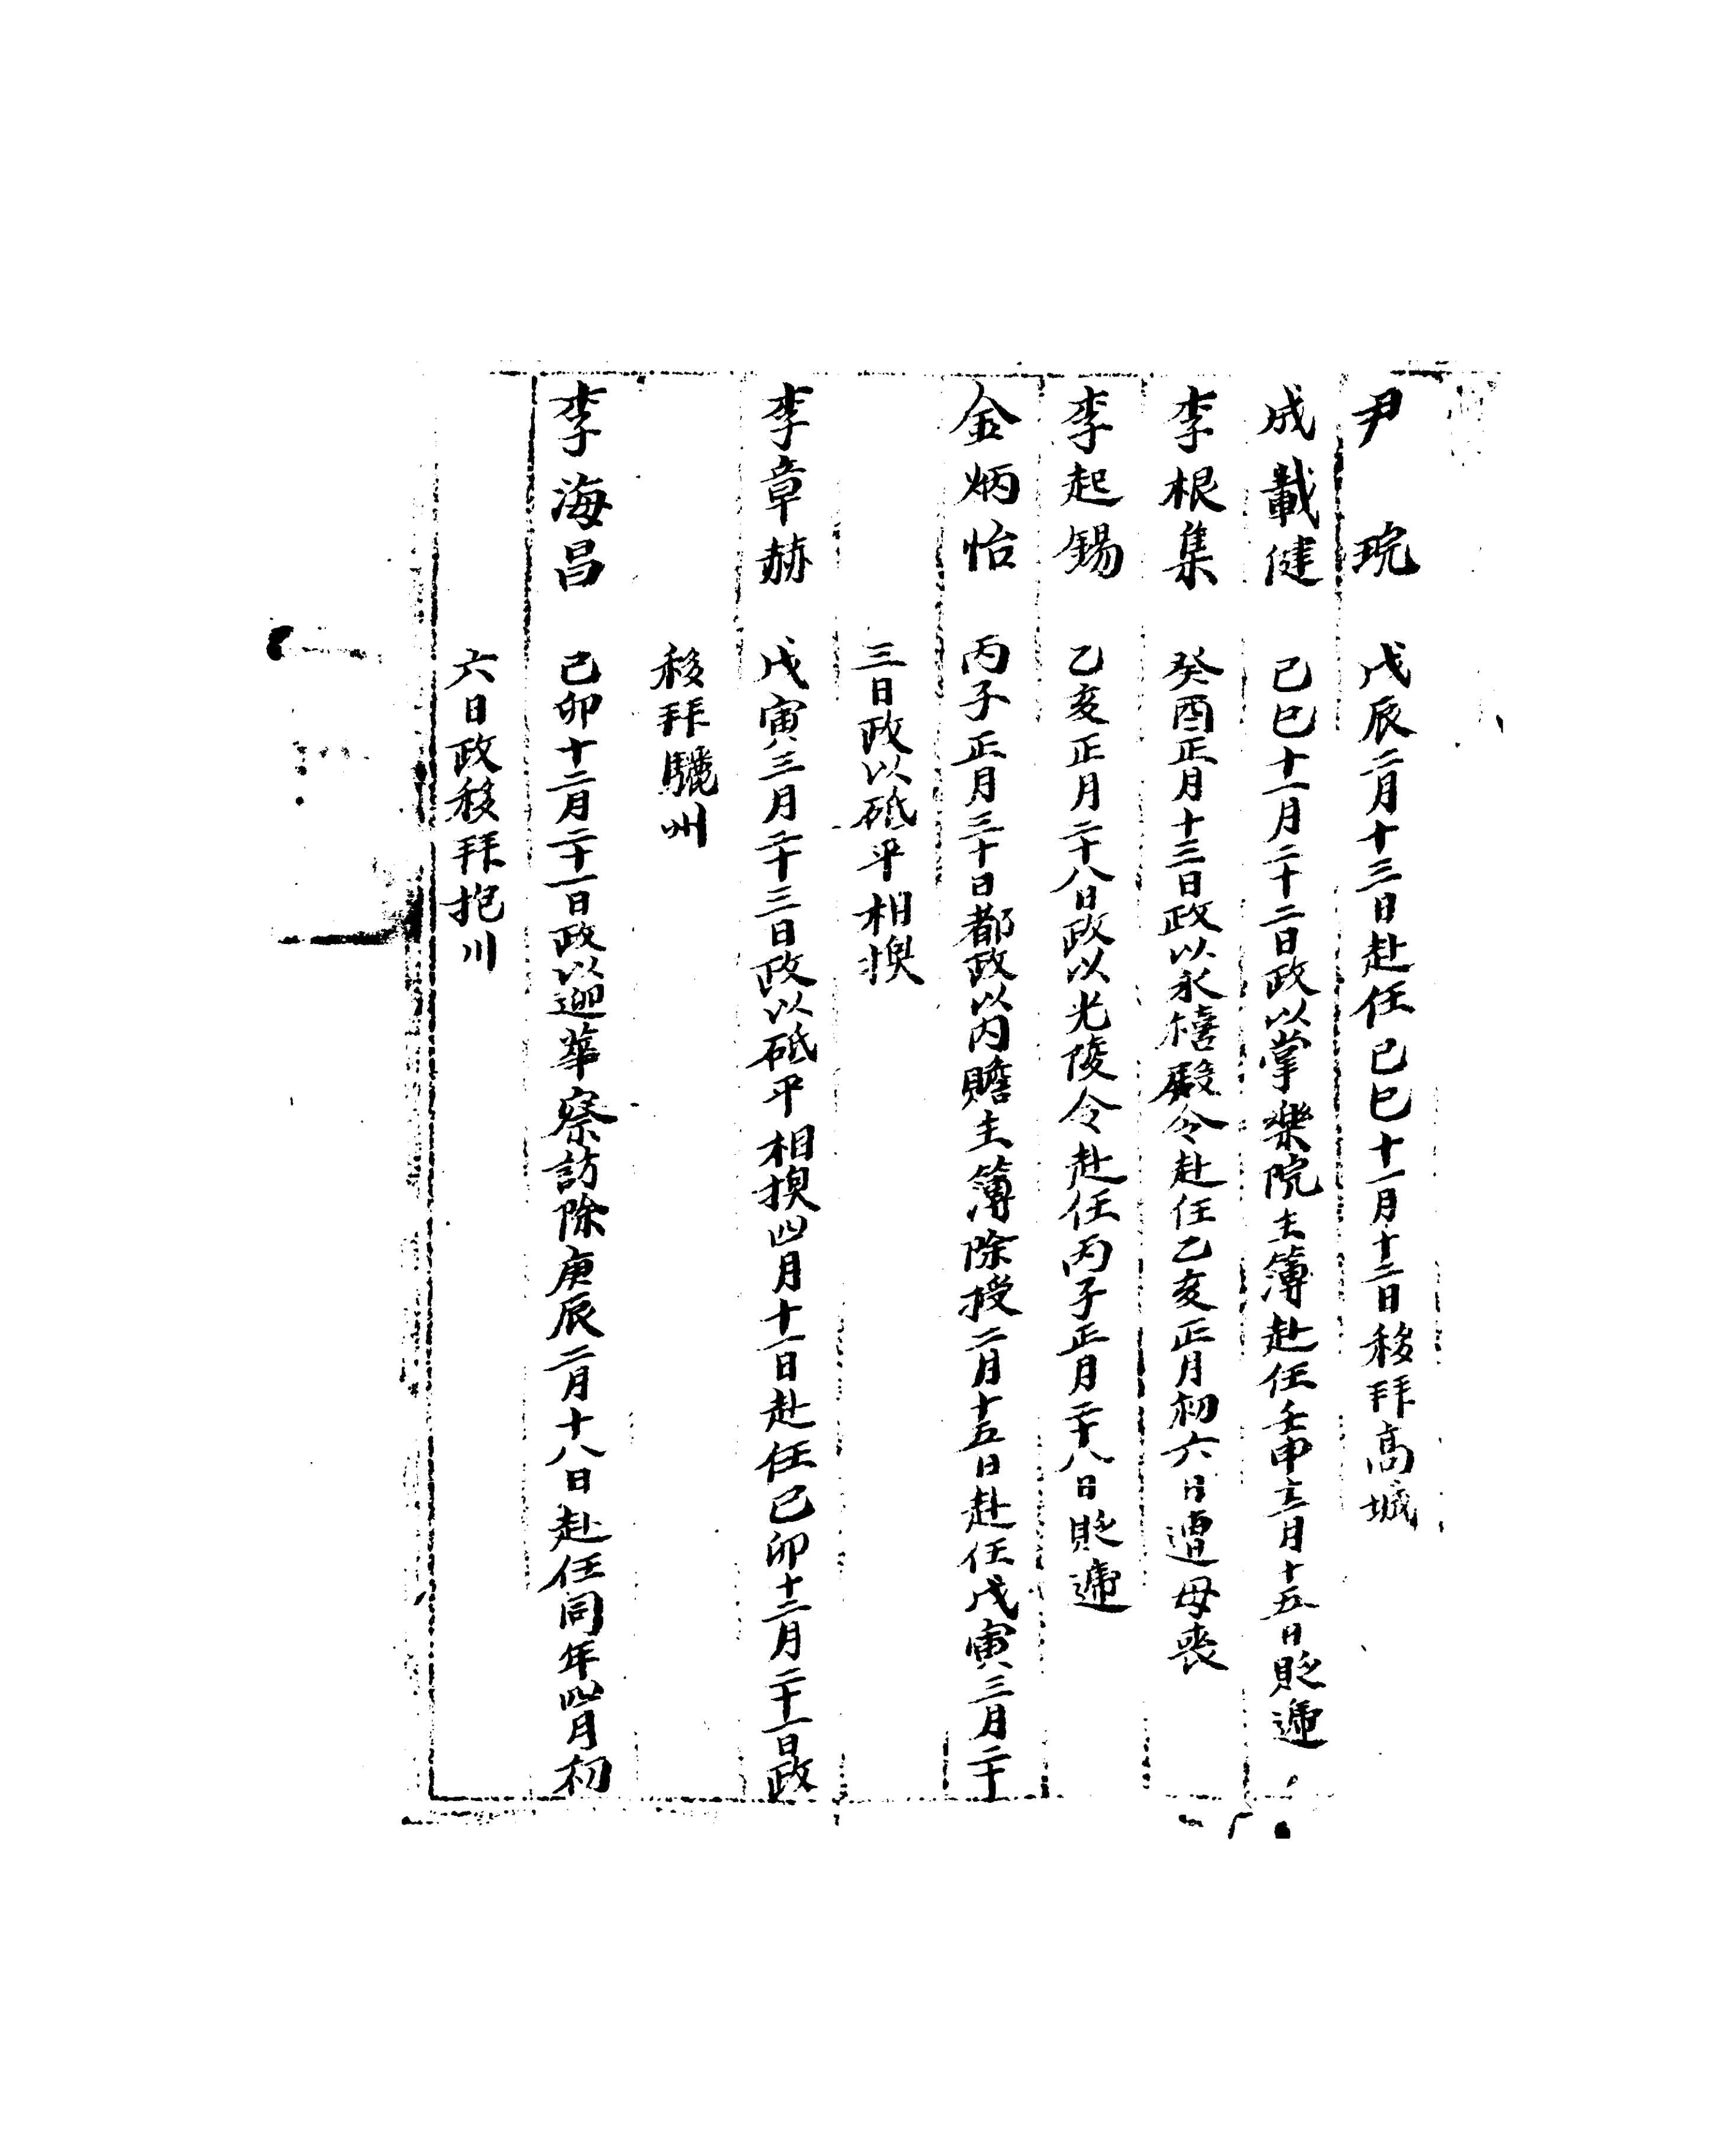 尹琓 戊辰二月十三日赴任己巳十一月十二日移拜高城
成載健 己巳十一月二十二日政以掌樂院主簿赴任壬申十二月十五日貶遞
李根集 癸酉正月十三日政以永禧殿令赴任乙亥正月初六日遭母喪
李起錫 乙亥正月二十八日政以光陵令赴任丙子正月二十八日貶遞
金炳怡 丙子正月三十日都政以內贍主簿除授二月十五日赴任戊寅三月二十
三日政以砥平相換
李章赫 戊寅三月二十三日政以砥平相換四月十一日赴任己卯十二月二十一日政
移拜驪州
李海昌 己卯十二月二十一日政以迎華察訪除庚辰二月十八日赴任同年四月初
六日政移拜抱川